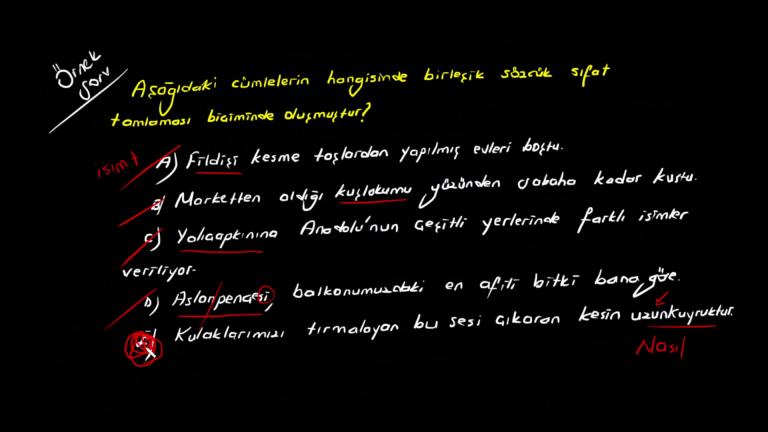 Örnek
Soru
Aşağıdaki cümlelerin hangisinde birleşik sözcük sıfat
tamlaması biçiminde oluşmuştur?
isim t
A) Fildişi kesme taşlardan yapılmış evleri boştu.
B) Marketten aldığı kuşlokumu yüzünden sabaha kadar kustu.
C) Yalıçapkınına Anadolu'nun çeşitli yerlerinde farklı isimler
veriliyor.
D) Aslanpençesi, balkonumuzdaki en afili bitki bana göre.
Kulaklarımızı tırmalayan bu sesi çıkaran kesin uzunkuyruktur.
Nasıl